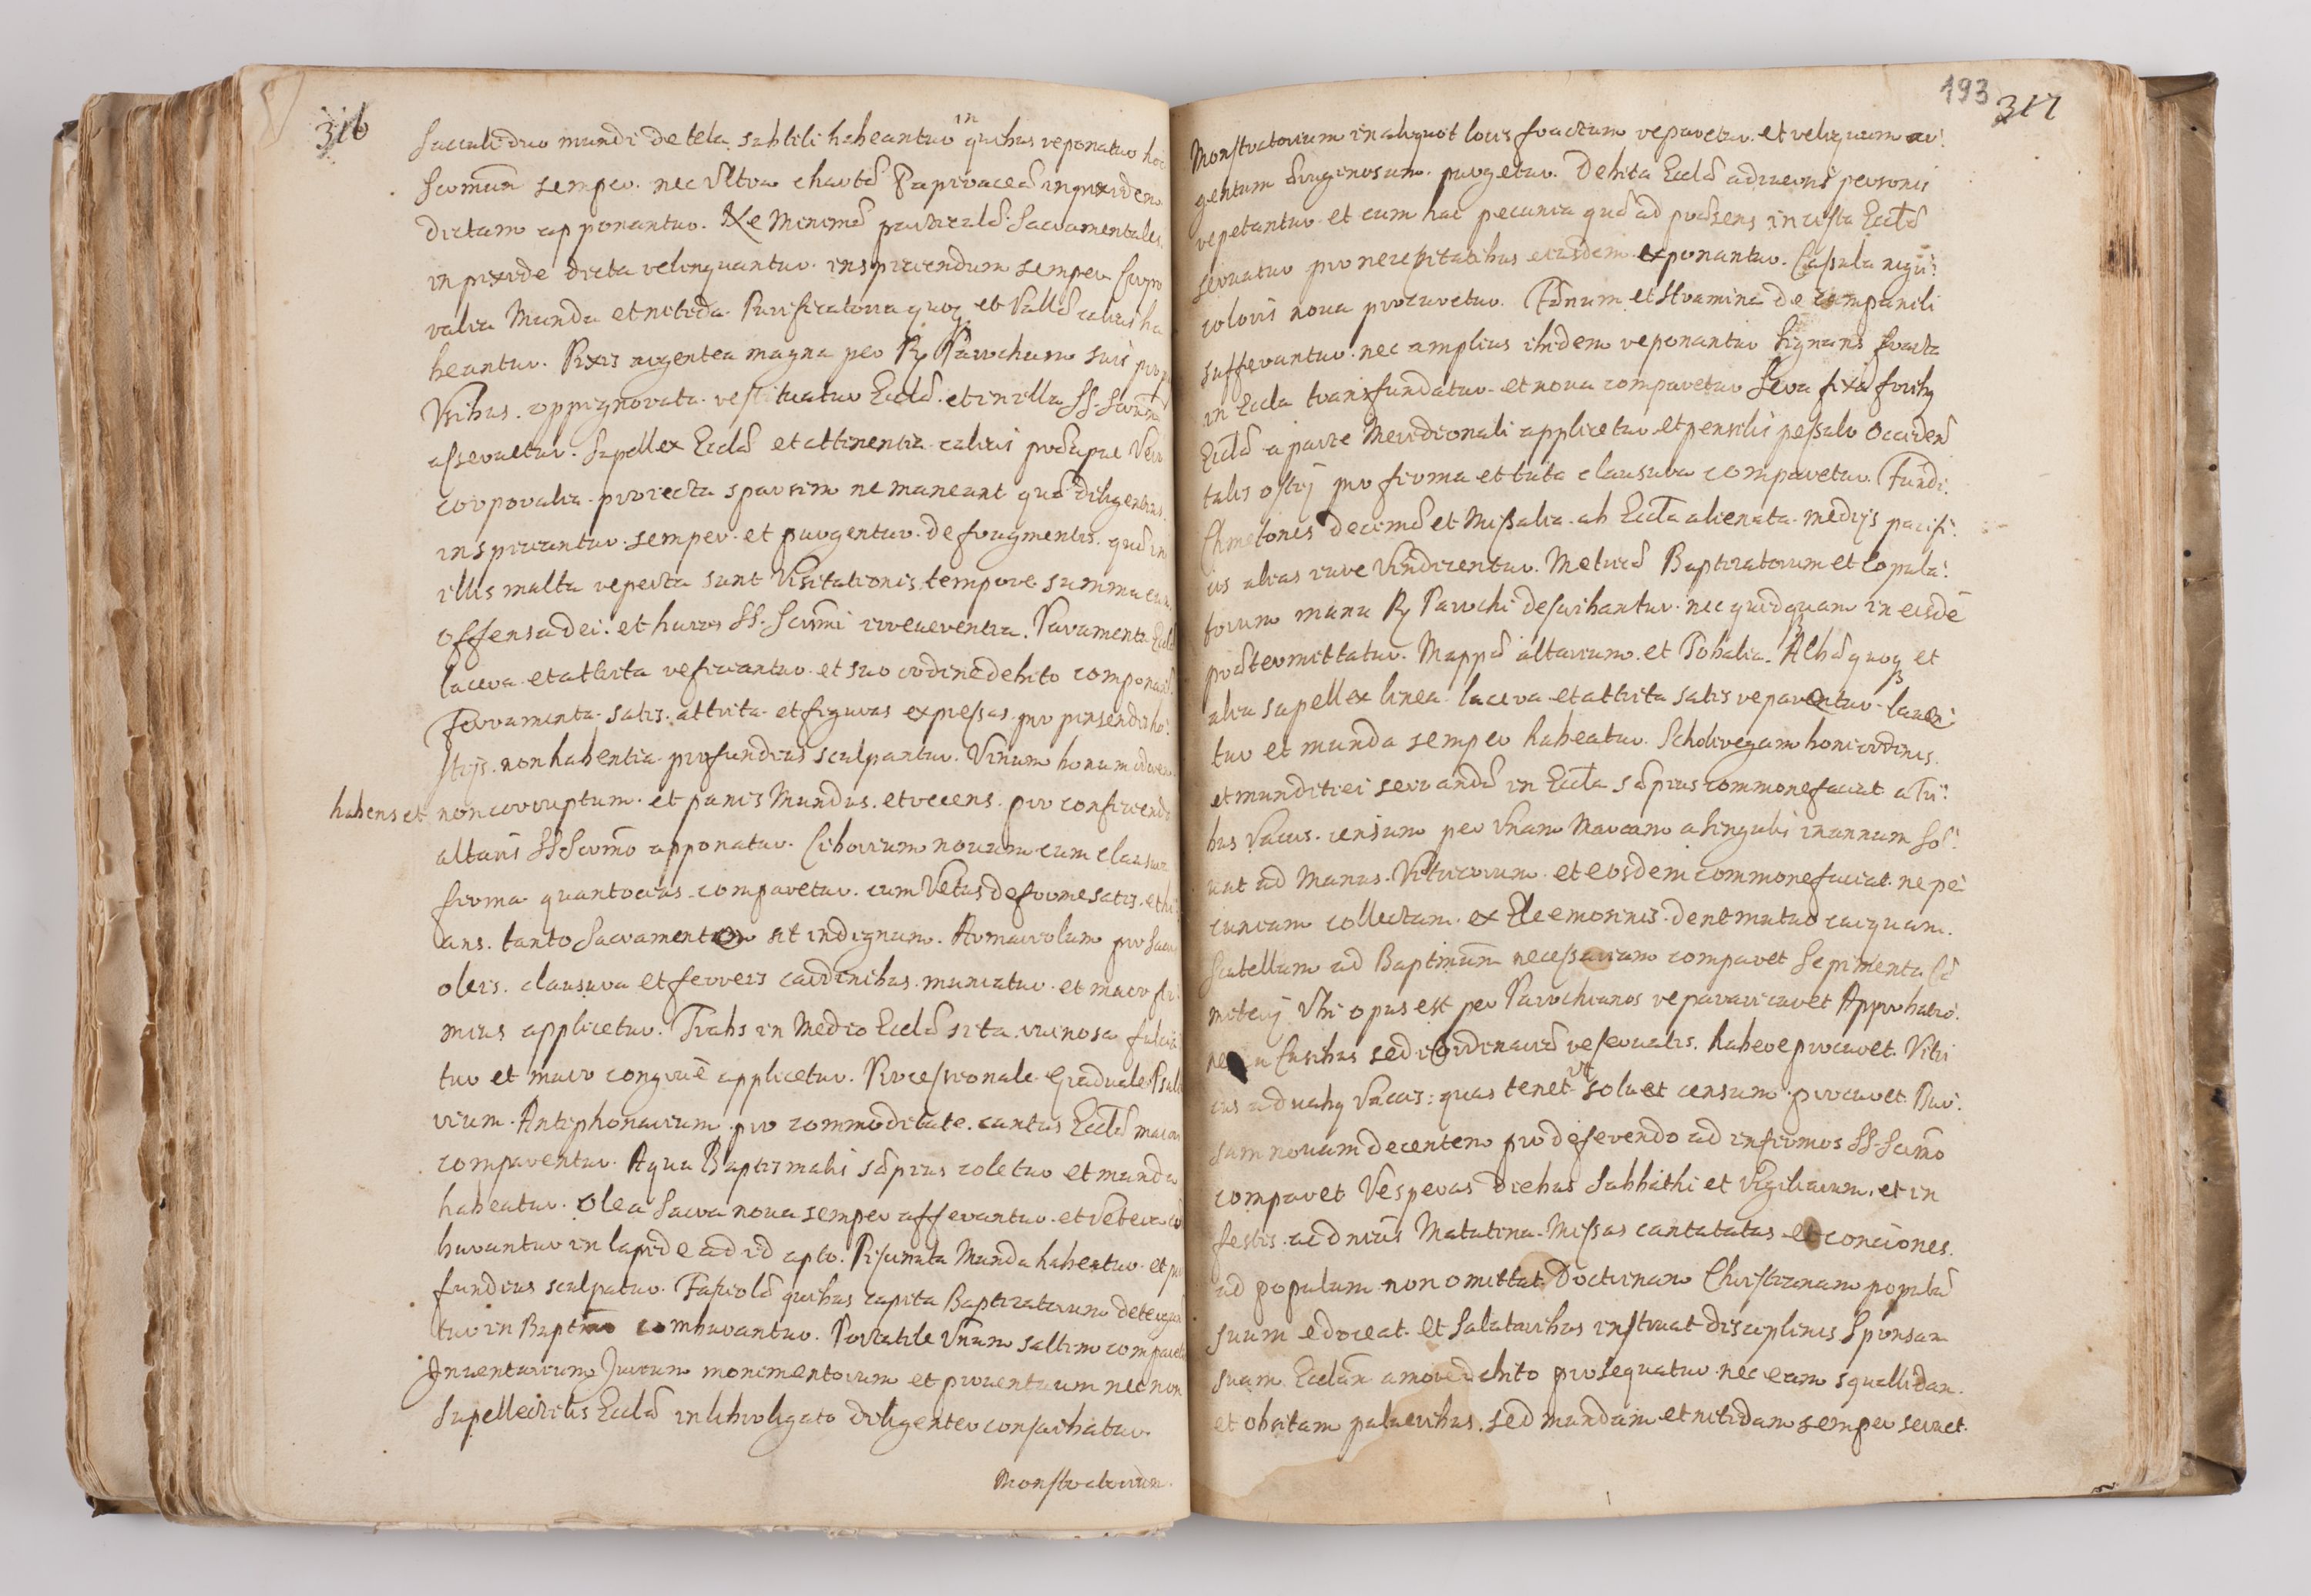 316
Sacculi duo mundi de tela subtili habeantur in quibus reponatur hoc
Scrmūm semper. nec ultra chartæ Papiraceæ in pixidem
dictam apponantur. Ne Minimæ particulæ Sacramentales
in pixide dicta relinquantur. inspiciendum semper Corpo
ralia Munda et nitida. Purificatoria quoq et Pallæ calicis ha
beantur. Pixis argentea magna per R Parochum suis
Usibus. oppignorata. restituatur Eccliæ. et in illa SS. Scrmūm
asservetur. Supellex Eccliæ et attinentia calicis præcipue
corporalia. proiecta sparsim ne maneant quæ diligentius.
inspiciantur. semper. et purgentur. de fragmentis. quæ in
illis multa reperta sunt Visitationis tempore summa cum
offensa dei. et huius SS. Scrmi irreverentia. Paramenta
lacera et attrita reficiantur. et suo ordine debito
Ferramenta. satis. attrita. et figuras expressas. pro pinsendis ho:
stijs. non habentia. profundius sculpantur. Vinum bonum odorem
habens et non corruptum. et panis Mundus. et recens. pro conficiendo
altaris SSScrmo apponatur. Ciborium novum cum clausura
firma quantocius. comparetur. cum Vetus deforme satis. et
ans. tanto Sacramento sit indignum. Armariolum pro Sacris
oleis. clausura et ferreis cardinibus. muniatur. et muro fir
mius applicetur. Trabs in Medio Eccliæ sita. ruinosa
tur et muro congruè applicetur. Processionale. Graduale. Psalte
rium. Antiphonarium. pro commoditate. cantus Eccliæ
comparentur. Aqua Baptismalis sæpius coletur et munda
habeatur. Olea Sacra nova semper afferantur. et Vetera com
burantur in lapide ad id apto. Piscinula Munda habeatur. et pro
fundius sculpatur. Fasciolæ quibus capita Baptizatorum
tur in Baptmo comburantur. Portatile Unum saltim comparetur
Inventarium Jurium monimentorum et proventuum nec non
Supellectilis Eccliæ in libro ligato diligenter conscribatur.
Monstratorium.
193 317
Monstratorium in aliquot locis fractum reparetur. et reliquum ar:
gentum æruginosum. purgetur. Debita Eccliæ a diversis personis
repetantur. et cum hac pecunia quæ ad præsens in cista Eccliæ
servatur pro necessitatibus eiusdem exponantur. Casula nigri:
coloris nova procuretur. Fænum et stramina de campanili
sufferantur. nec amplius ibidem reponantur Signans fracta
in Eccla transfundatur. et nova comparetur Sera fixa foribq
Eccliæ a parte Meridionali applicetur et pensilis pessulo Occiden
talis ostij pro firma et tuta clausura comparetur. Fundi.
Chmetones decimæ et Missalia. ab Eccla alienata. medijs pacifi:
cis alias iure Vindicentur. Metricæ Baptizatorum et Copula:
torum manu R Parochi describantur. nec quidquam in eisdē
prætermittatur. Mappæ altarium. et Tobalia. Albæ quoq et
alia supellex linea. lacera et attrita satis reparentur. laven:
tur et munda semper habeatur. Scholiregam boni ordinis.
et munditiei servandæ in Eccla sæpius commonefaciat a Tri:
bus Vaccis. censum per Unam Marcam a singulis in annum Sol:
vat ad Manus. Vitricorum. et eosdem commonefaciat. ne pe
cuniam collectam. ex Eleemosinis. dent mutuo cuiquam.
Scutellum ad Baptmūm necessarium comparet Sepimenta Cæ
meterij Ubi opus est per Parochianos reparari curet Approbatio:
ne casibus sedi Ordinariæ reservatis. habere procuret. Vitri
cus a duabq Vaccis: quas tenet ut solvet censum. procuret. Bur:
sam novam decentem pro deferendo ad infirmos SS. Scrmo
comparet Vesperas diebus Sabbathi et Vigiliarum. et in
festis. ac dnicis Matutina. Missas cantatatas et conciones.
ad populum non omittat Doctrinam Christianam populū
suum edoceat. et Salutaribus instruat disciplinis Sponsam
suam Eccliam amore debito prosequatur. nec eam squallidam.
et obsitam pulveribus. sed mundam et nitidam semper servet.